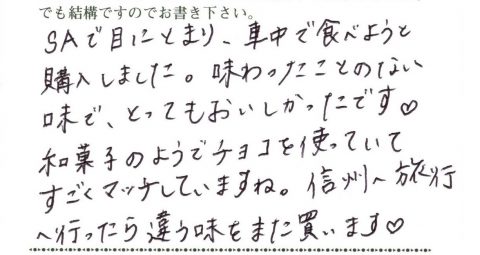 でも結構ですのでお書き下さい。
SAで目にとまり、車中で食べようと
購入しました。味わったことのない
味で、とってもおいしかったです♡
和菓子のようでチョコを使っていて
すごくマッチしていますね。信州へ旅行
へ行ったら違う味をまた買います♡